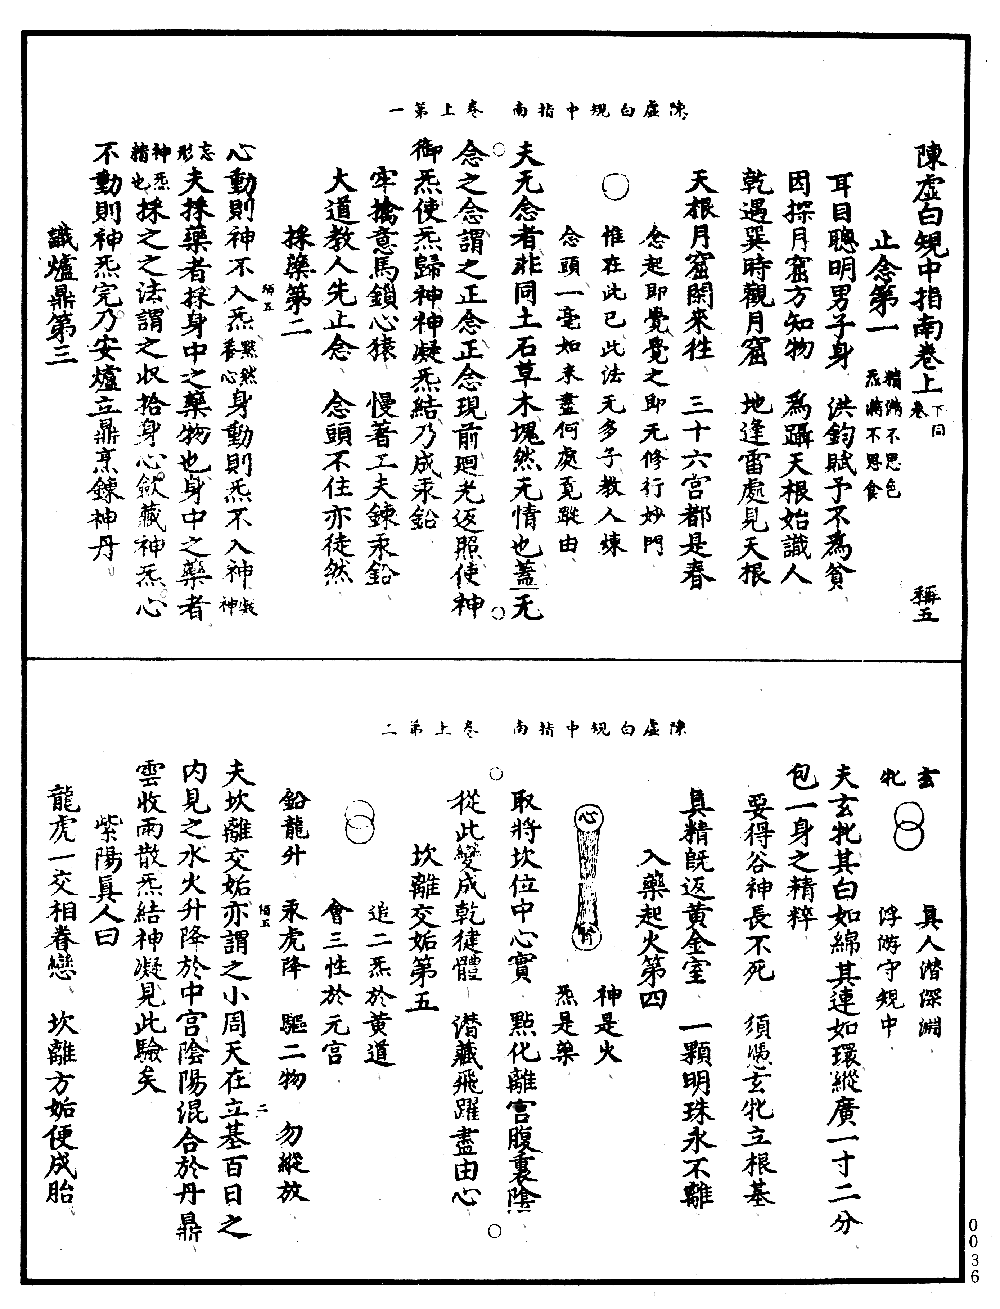 陳虛白䂓中指南　卷上第一
陳虛白䂓中指南卷上　下卷同　稱五
止念第一　精滿不思色
炁滿不思食
耳目聰明男子身　洪鈞賦予不爲貧
因探月窟方知物　爲躡天根始識人
乾遇巽時觀月窟　地逢雷處見天根
天根月窟閑來徃　三十六宮都是春
念起即覺覺之即无修行妙門
○　惟在此已此法无多子教人煉
念頭一毫如未盡何處覓蹤由
夫无念者非同土石草木塊然无情也蓋无
念之念謂之正念正念現前廻光返照使神
御炁使炁歸神神凝炁結乃成汞鉛
牢擒意馬鎖心猿　慢著工夫鍊汞鉛
大道教人先止念　念頭不住亦徒然
採藥第二
稱五
心動則神不入炁　默然養心　身動則炁不入神　凝神
忘形　夫採藥者採身中之藥物也身中之藥者
神炁精也　採之之法謂之収拾身心歛藏神炁心
不動則神炁完乃安爐立鼎烹鍊神丹
識爐鼎第三
陳虛白䂓中指南　卷上第二
玄　真人潛深淵
牝　浮游守䂓中
夫玄牝其白如綿其連如環縱廣一寸二分
包一身之精粹
要得谷神長不死　須憑玄牝立根基
真精旣返黄金室　一顆明珠永不離
入藥起火第四
心　腎　神是火
炁是藥
取將坎位中心實　點化離宮腹裏陰
從此變成乾健體　潜藏飛躍盡由心
坎離交姤第五
追二炁於黄道
會三性於元宮
鉛龍升　汞虎降　驅二物　勿縱放
稱五　二
夫坎離交姤亦謂之小周天在立基百日之
内見之水火升降於中宮陰陽混合於丹鼎
雲收雨散炁結神凝見此驗矣
紫陽真人曰
龍虎一交相眷戀　坎離方姤便成胎
0036